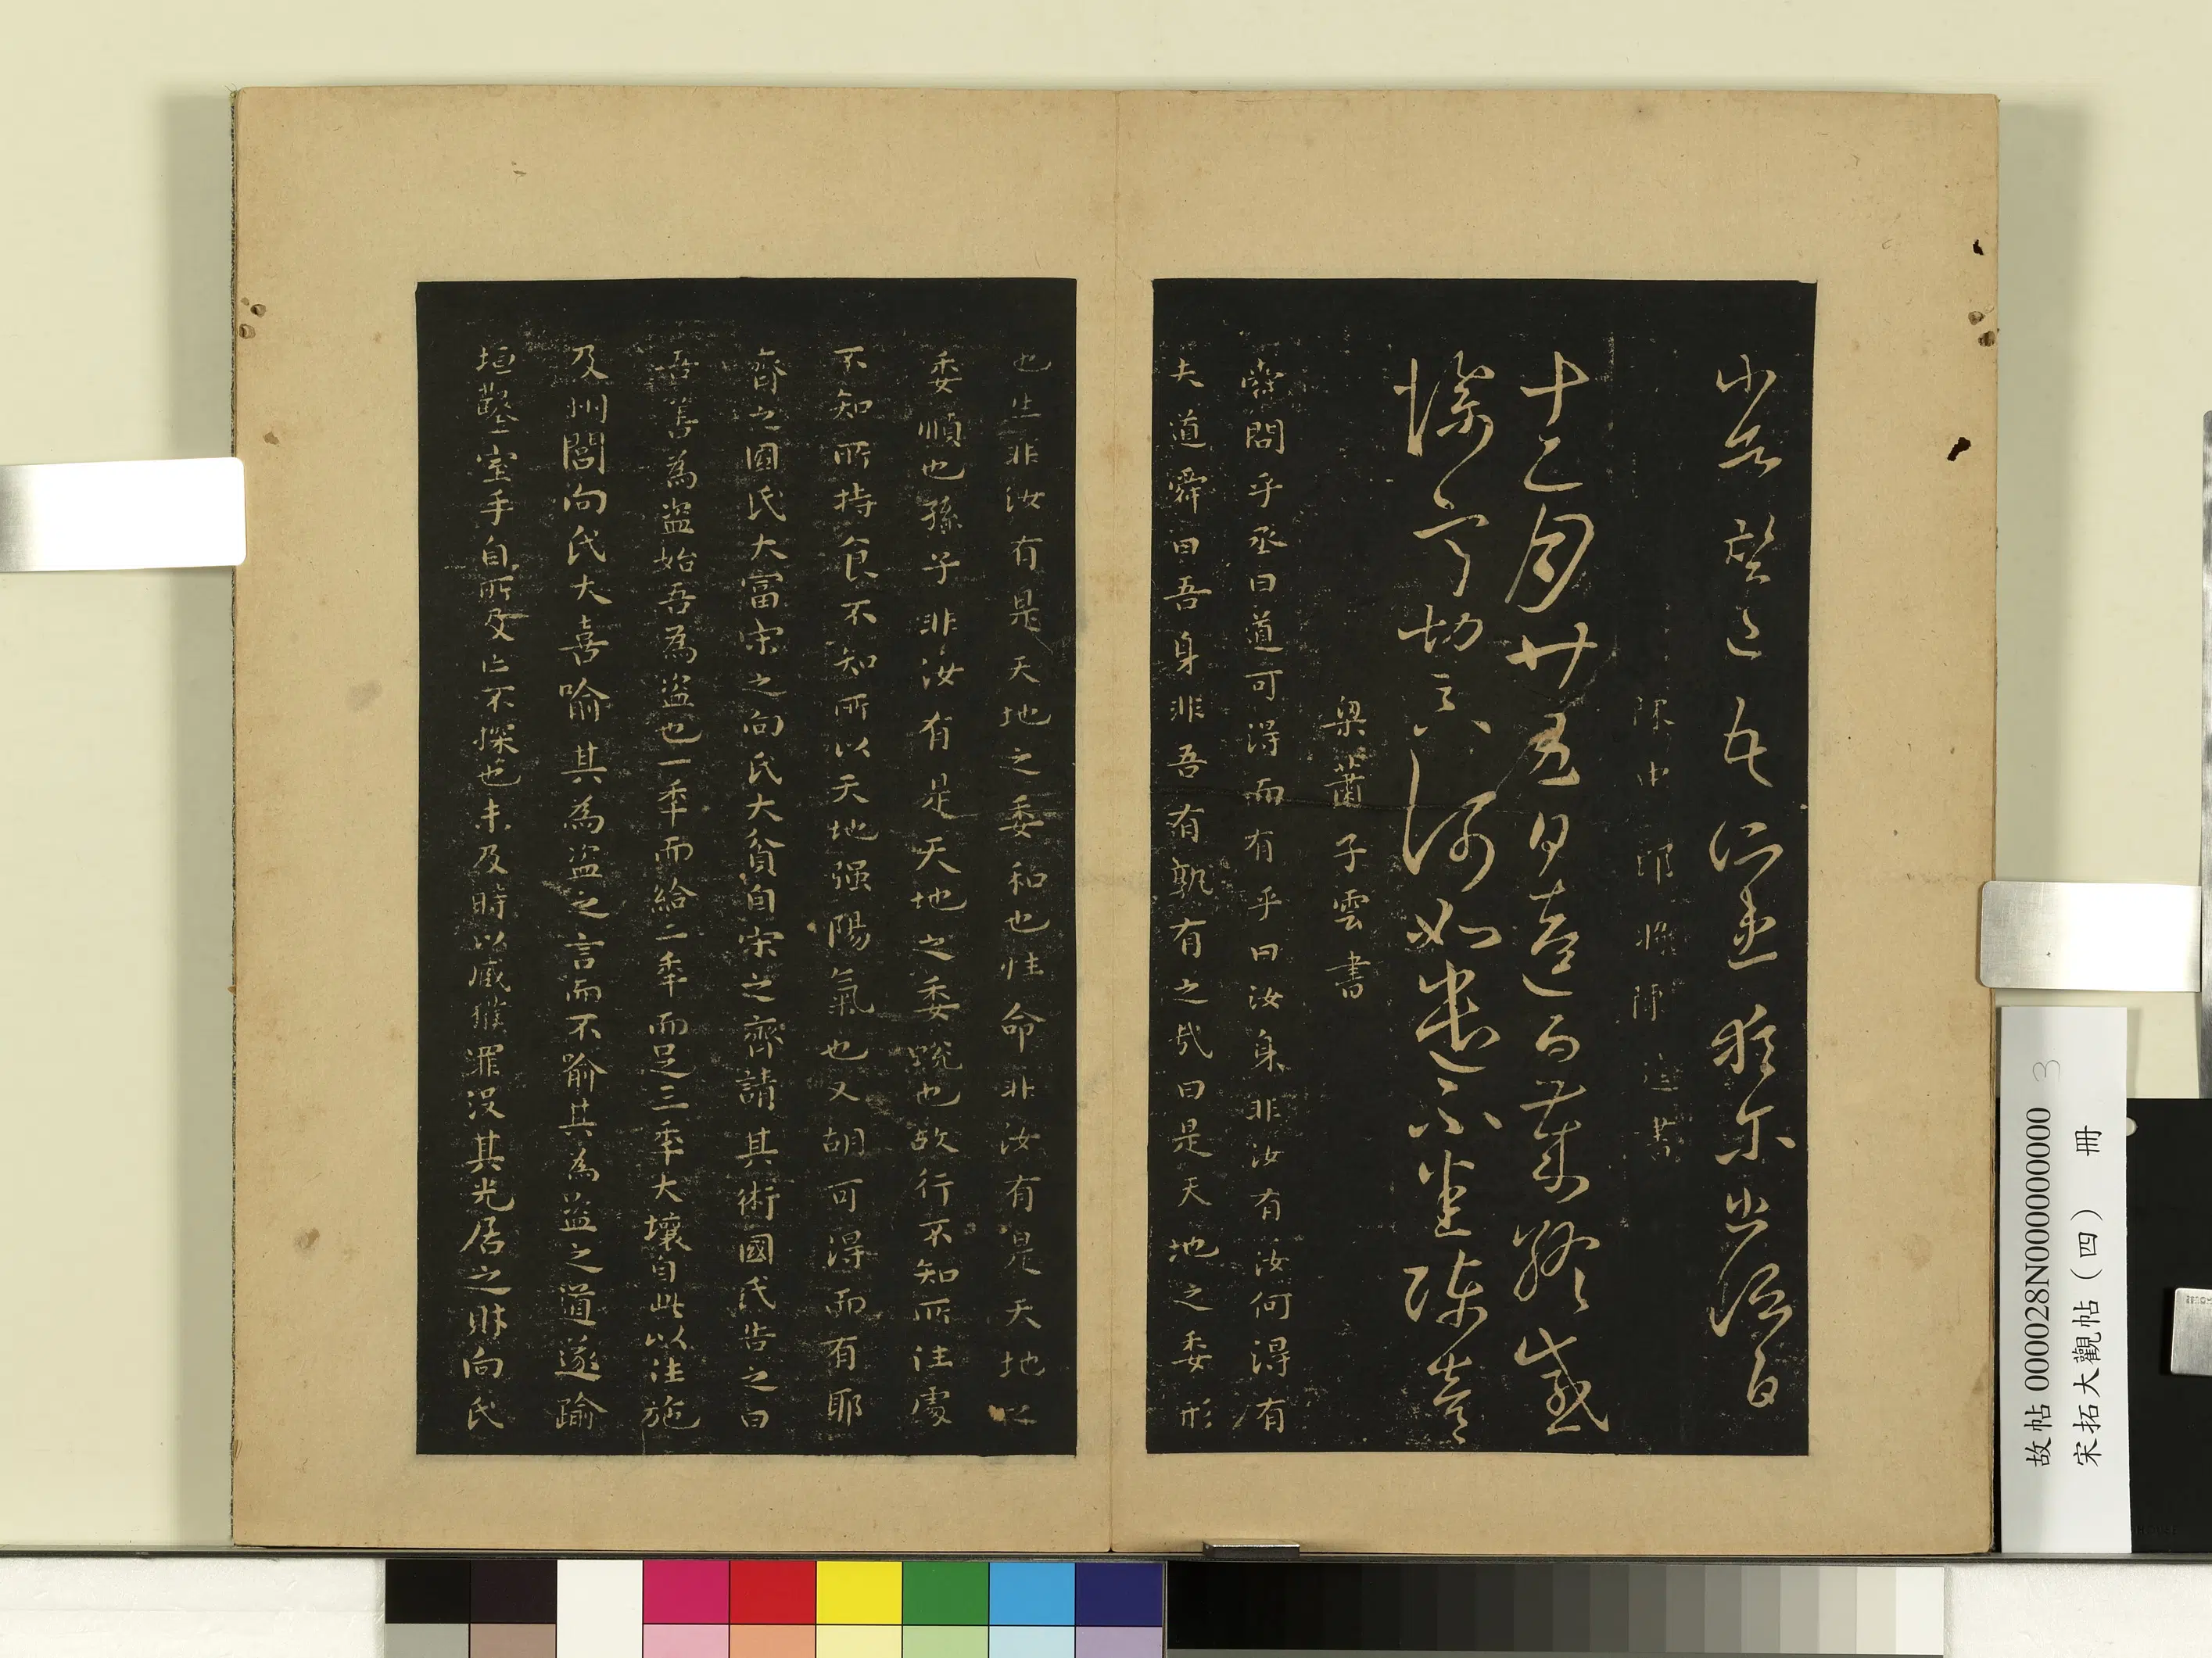 陳中郎將陳逵書
十二月廿五日逵白歲終感
切 何如 不
梁蕭子雲書
舜問乎丞曰道可得而有乎曰汝身非汝有汝何得有
夫道舜曰吾身非吾有孰有之哉曰是天地之委形
也生非汝有是天地之委和也性命非汝有是天地之
委順也孫子非汝有是天地之委蛻也故行不知所往處
不知所持食不知所以天地强陽氣也又胡可得而有耶
齊之國氏大富宋之向氏大貧自宋之齊請其術國氏告之曰
吾善為盜始吾為盜也一秊而給二秊而足三秊大壤自此以往施
及州閭向氏大喜喻其為盜之言而不喻其為盜之道遂踰
垣鑿室手自所及亡不探也未及時以臧獲罪沒其先居之財向氏
故帖000028N000000000 3
宋拓大觀帖（四） 冊